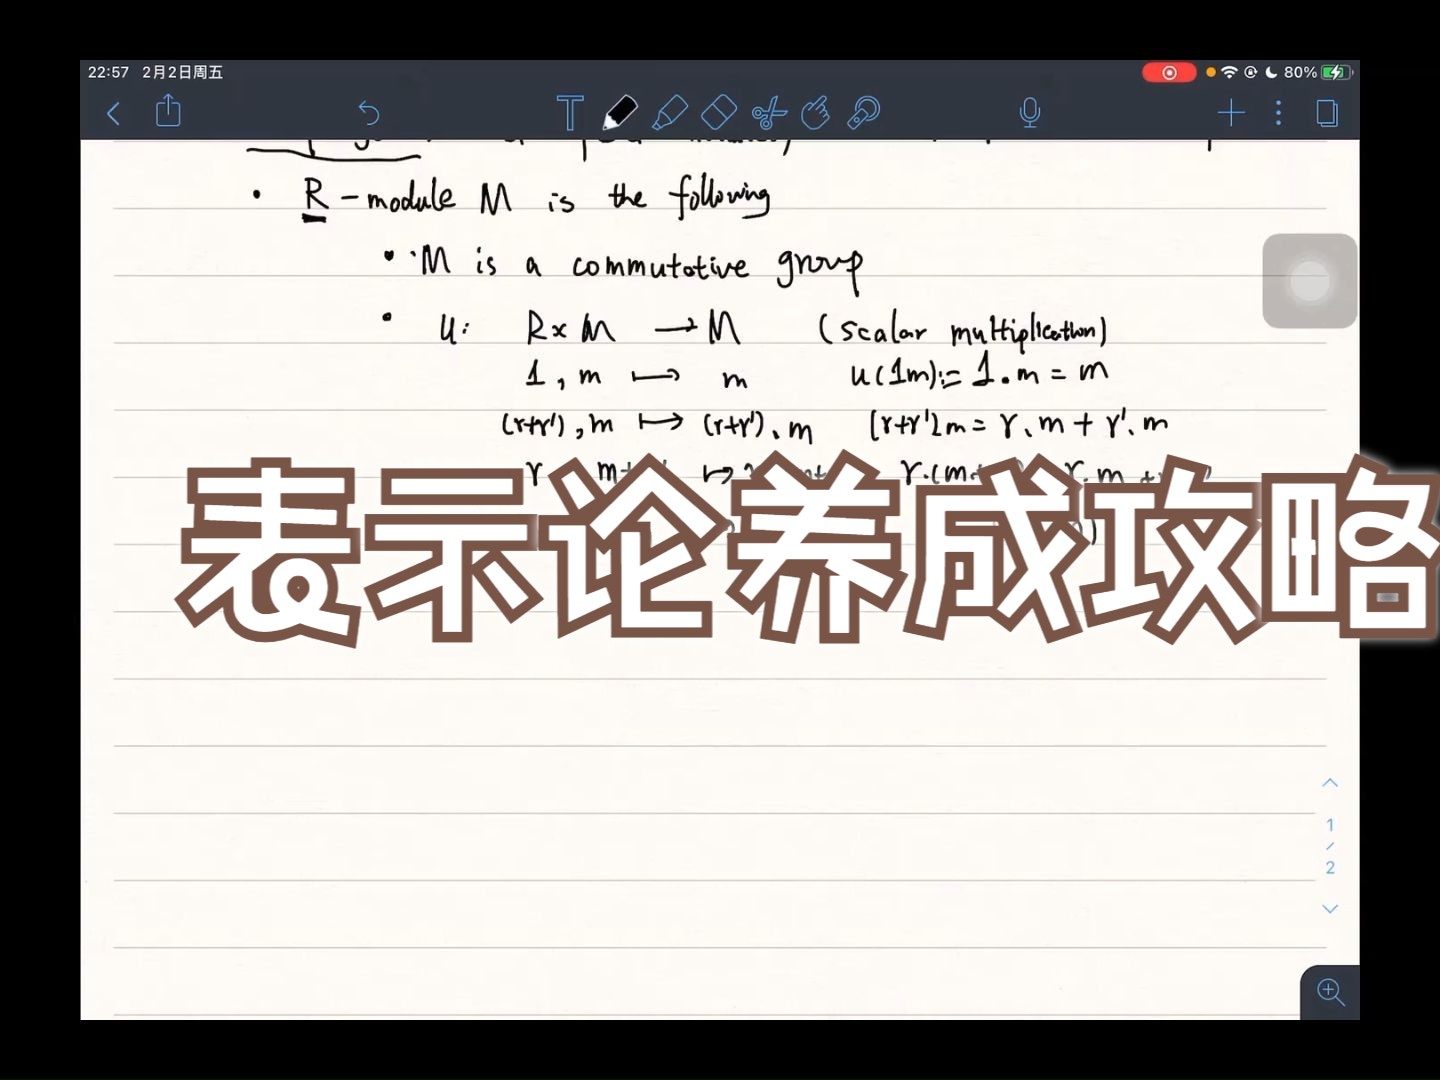 22:57 2月2日周五
80%
• R-module M is the following
• M is a commutative group
• u: R×M → M (scalar multiplication)
1, m ↦ m u(1m):= 1.m = m
(r+r'), m ↦ (r+r').m (r+r')m = r.m + r'.m
表示论养成攻略
1
/
2